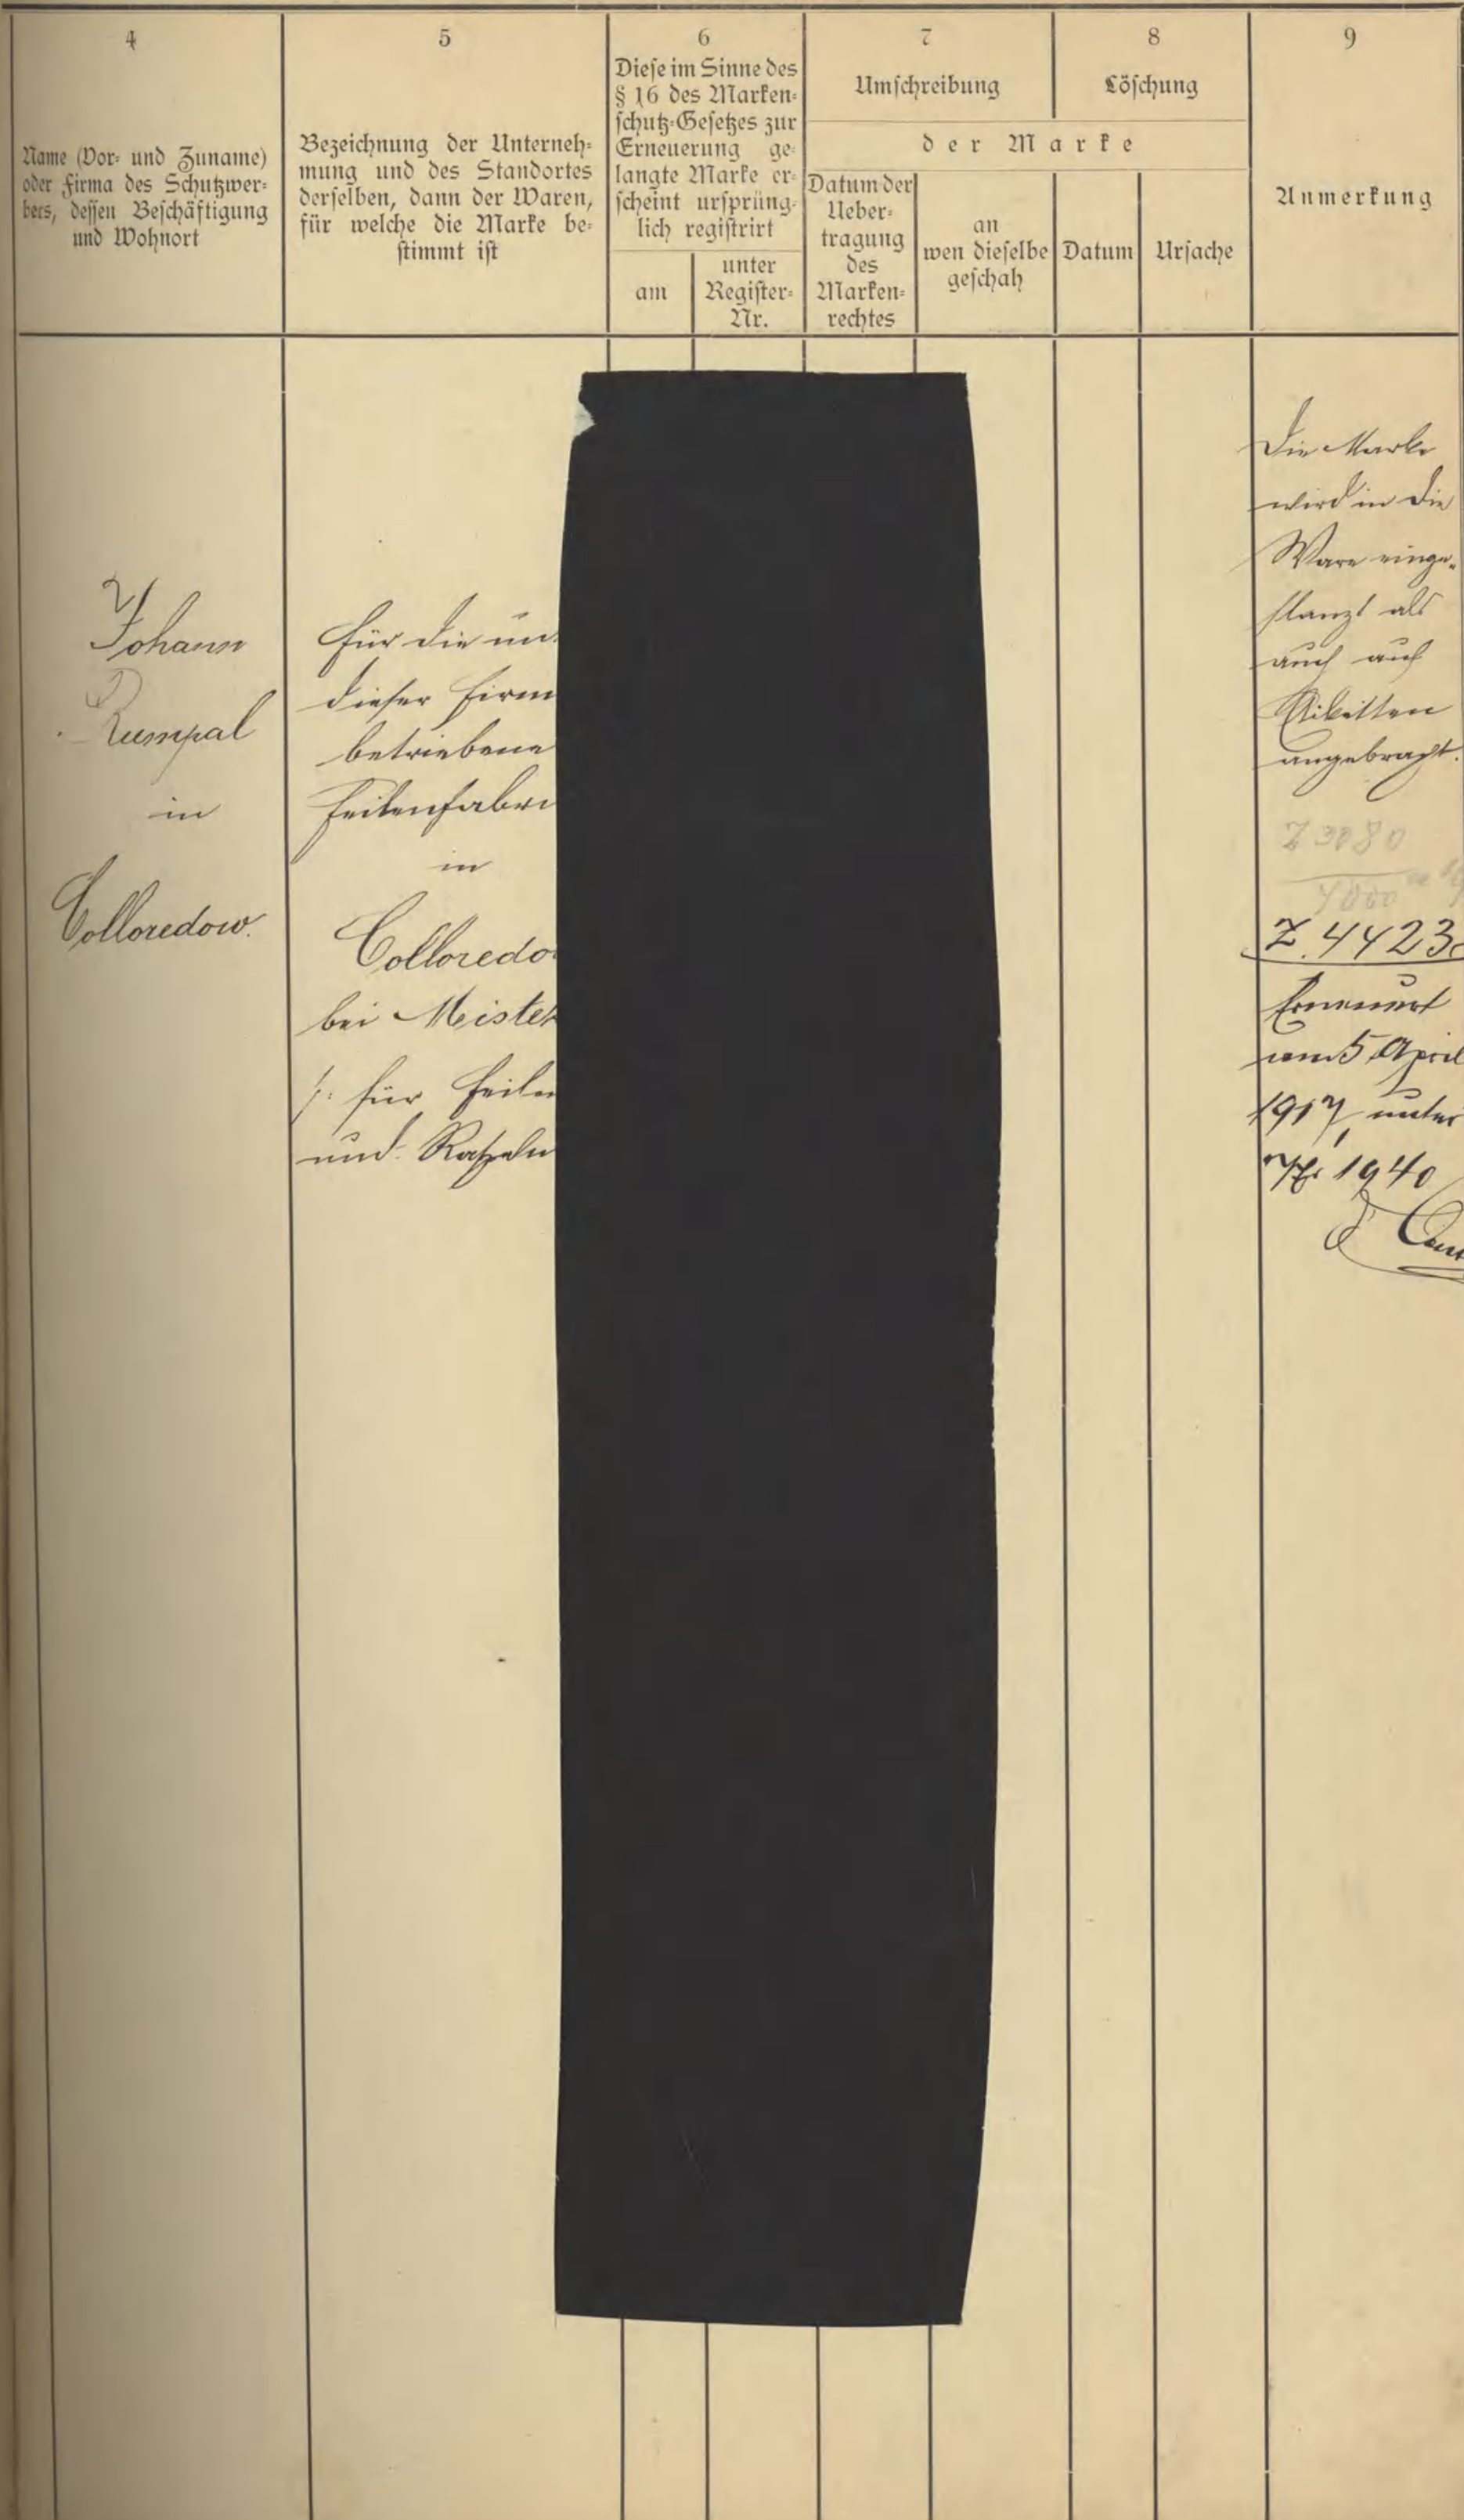 4
Name (Vor- und Zuname)
oder Firma des Schutzwer-
bers, dessen Beschäftigung
und Wohnort
5
Bezeichnung der Unterneh-
mung und des Standortes
derselben, dann der Waren,
für welche die Marke be-
stimmt ist
6
Diese im Sinne des
§ 16 des Marken-
schutz-Gesetzes zur
Erneuerung ge-
langte Marke er-
scheint ursprüng-
lich registrirt
am
unter
Register-
Nr.
7
Umschreibung
8
Löschung
der Marke
Datum der
Ueber-
tragung
des
Marken-
rechtes
an
wen dieselbe
geschah
Datum
Ursache
9
Anmerkung
Johann
Rumpal
in
Colloredow.
für die un
dieser Firm
betriebene
Feilenfabri
in
Colloredo
bei Mistek
/: für Feilen
und Raspeln
Die Marke
wird in die
Ware einge-
stanzt als
auch auf
Etiketten
angebracht.
Z 3080
Z. 4423
Erneuert
am 5 April
1917, unter
Nr 1940